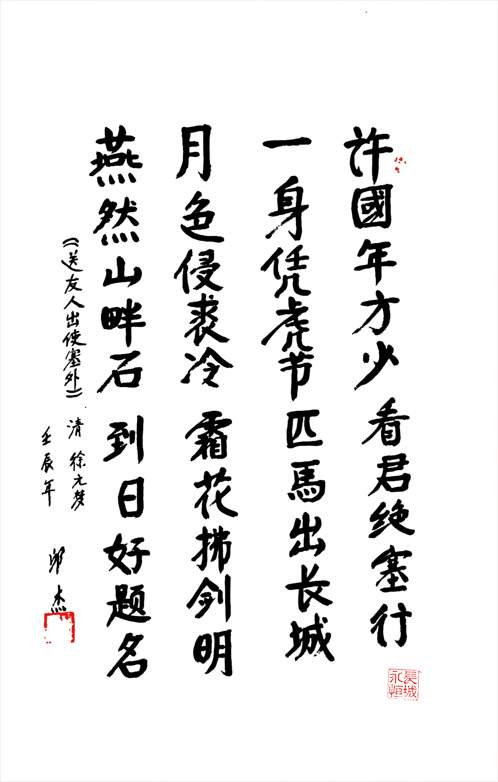 许國年方少 看君绝塞行
一身凭虎节 匹馬出长城
月色侵裘冷 霜花拂剑明
燕然山畔石 到日好题名
《送友人出使塞外》 清 徐元梦
壬辰年 邱杰
長城永恒